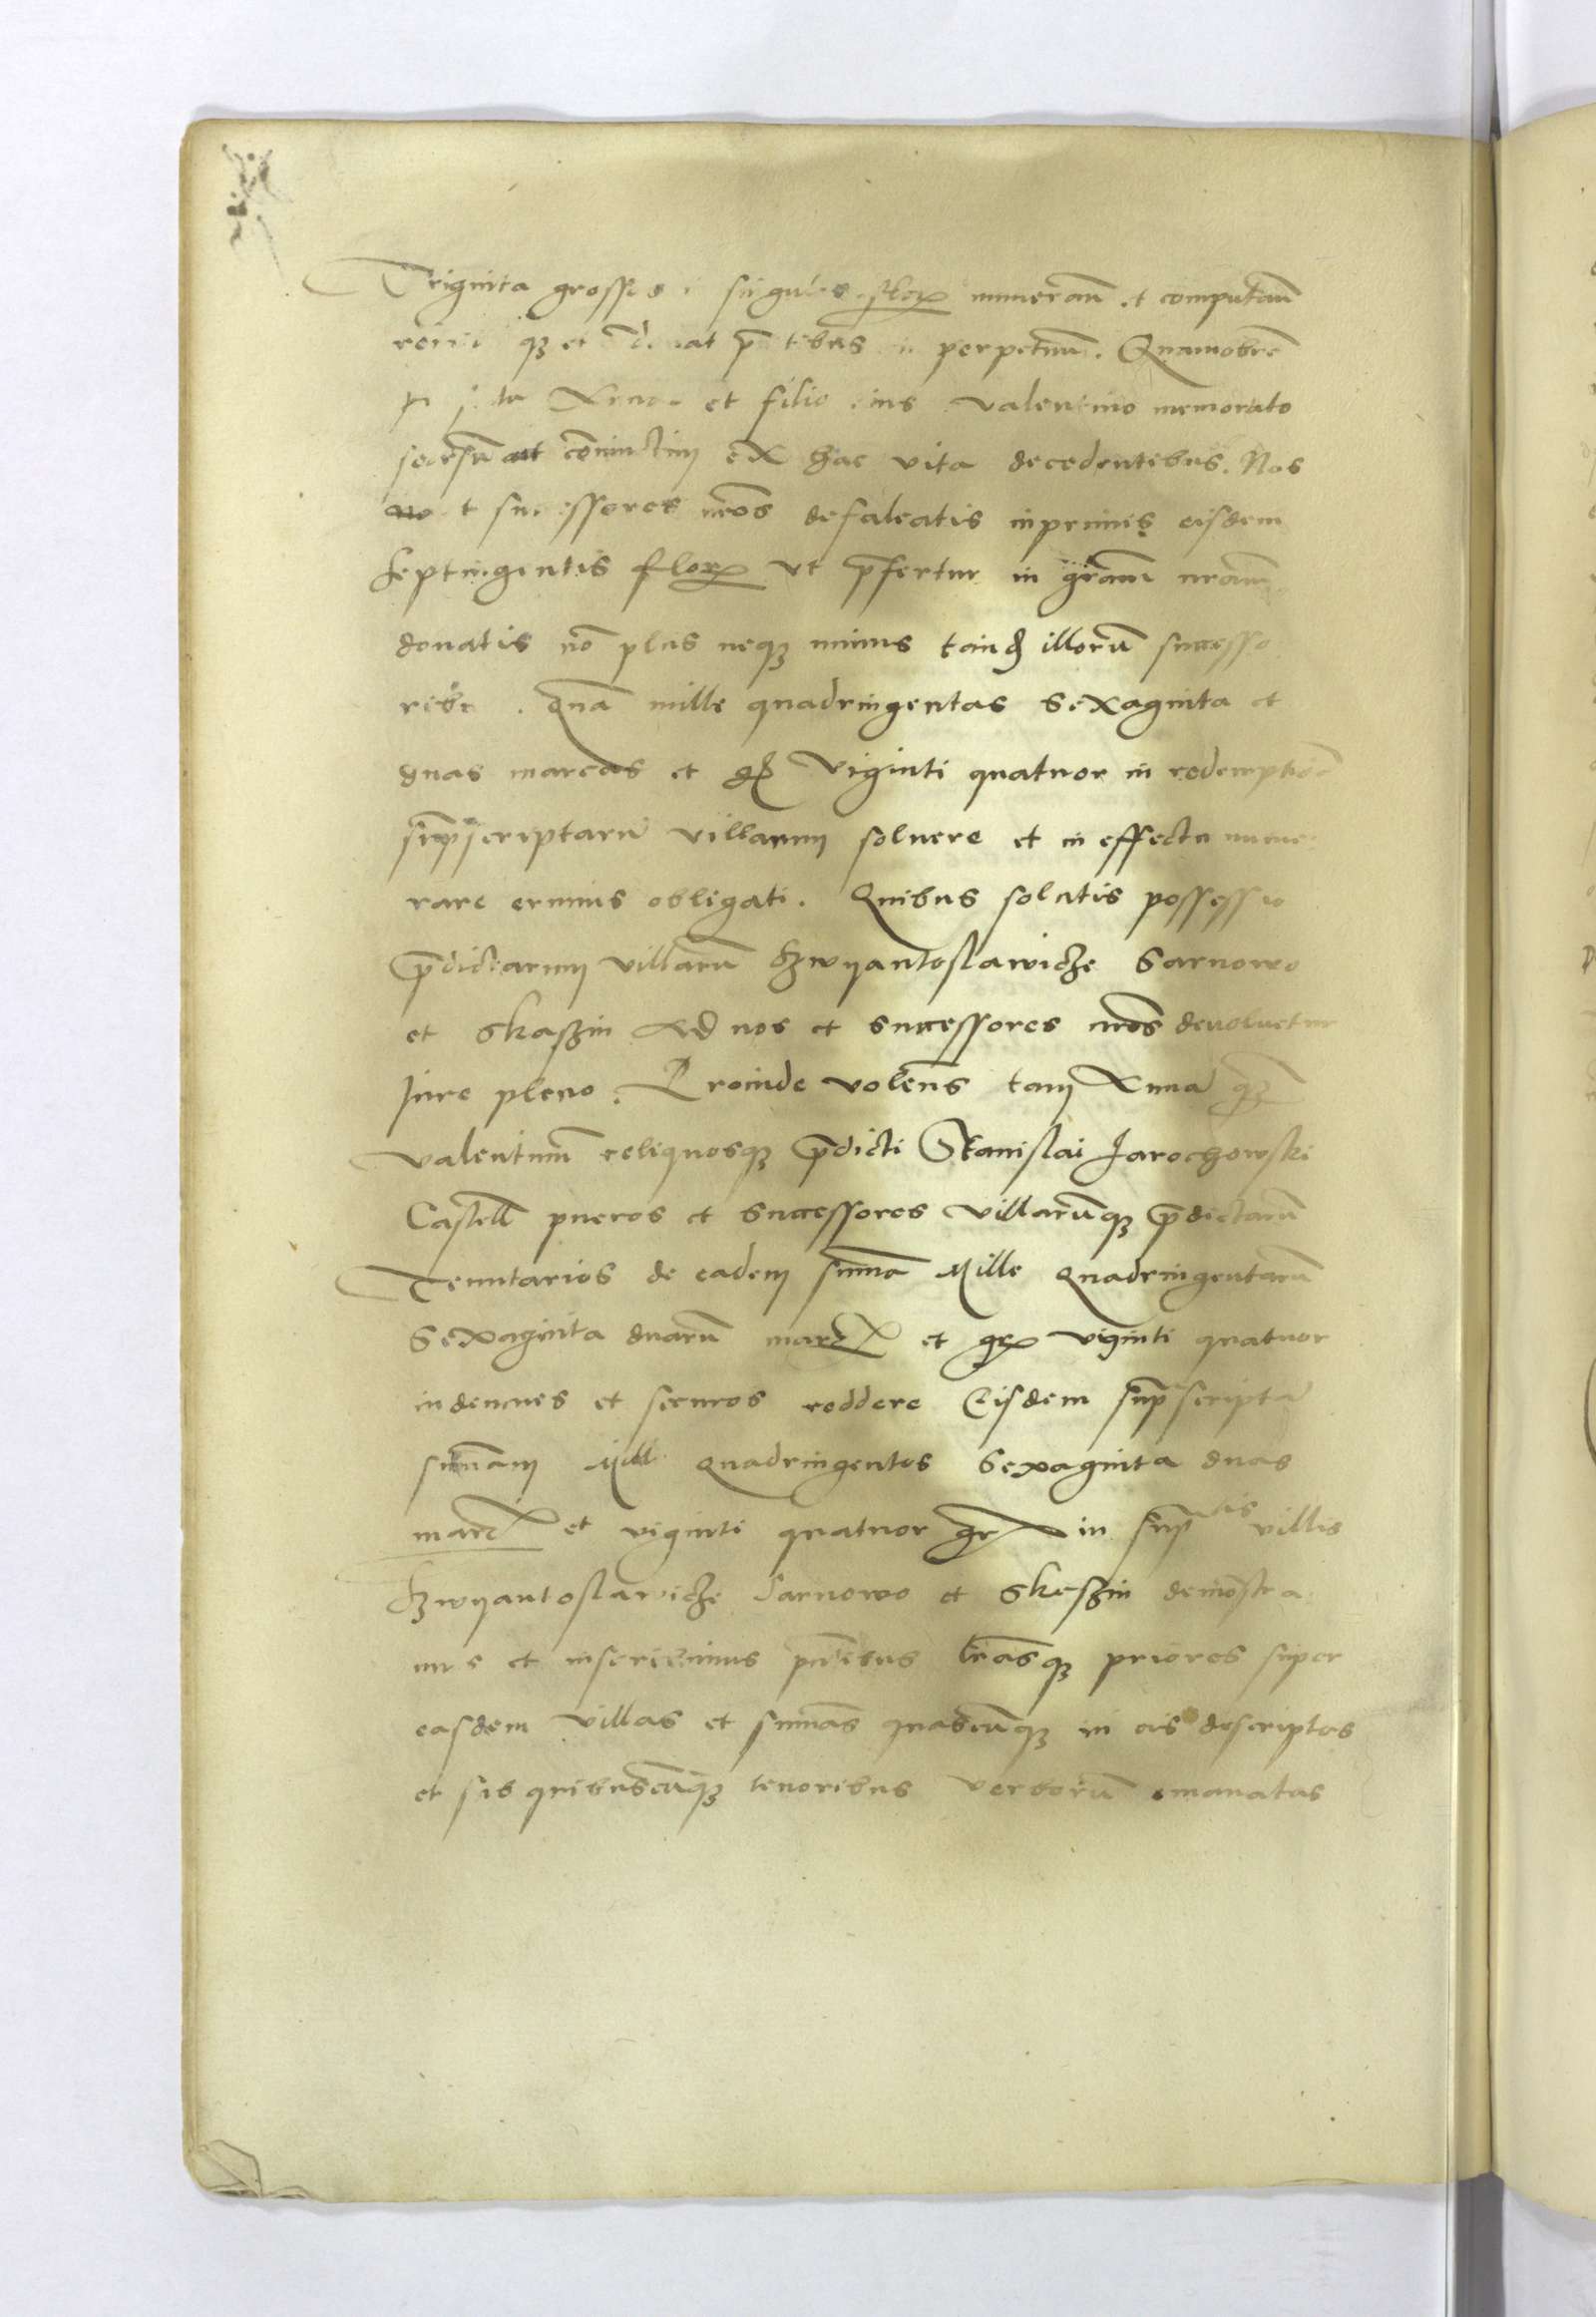 Triginta grossos i singulos flor numeran̄ et computan̄
q3 et donat pn̄tibus in perpetuum. Quamobrē
et filio eius Valentino memorato
seorsū aut cōniunctim ex hac vita decedentibus. Nos
et successores nr̄os defalcatis inprimis eisdem
septingentis flor vt p̄fertur in gr̄am nr̄am
donatis nō plus neq3 minus illorū successo
ribus. Quā mille quadringentas Sexaginta et
duas marcas et gr Viginti quatuor in redemptiōē
sup̄scriptarū villarum soluere et in effectu nume
rare erimus obligati. Quibus solutis possessio
p̄dictarum villarū Szwyantoslawicze Sarnowo
et Skaszin Ad nos et successores nr̄os deuoluetur
Jure pleno. Proinde volen̄s tam Annā q̄3
Valentinum reliquosq3 p̄dicti Stanislai Jarochowski
Castelln̄ pueros et Successores villarūq3 p̄dictarū
Tenutarios de eadem sūma Mille Quadringentarū
Sexaginta duarū marc et gr viginti quatuor
indemnes et securos reddere Eisdem sup̄scriptā
sūmam Mill Quadringentas Sexaginta duas
marc et viginti quatuor gr in sup̄tis villis
Szwyantoslawicze Sarnowo et Skaszin demōstra
mus et inscribimus pn̄tibus lr̄asq3 priores super
easdem villas et sūmas quascūq3 in eis descriptas
et sub quibuscūq3 tenoribus verborū emanatas